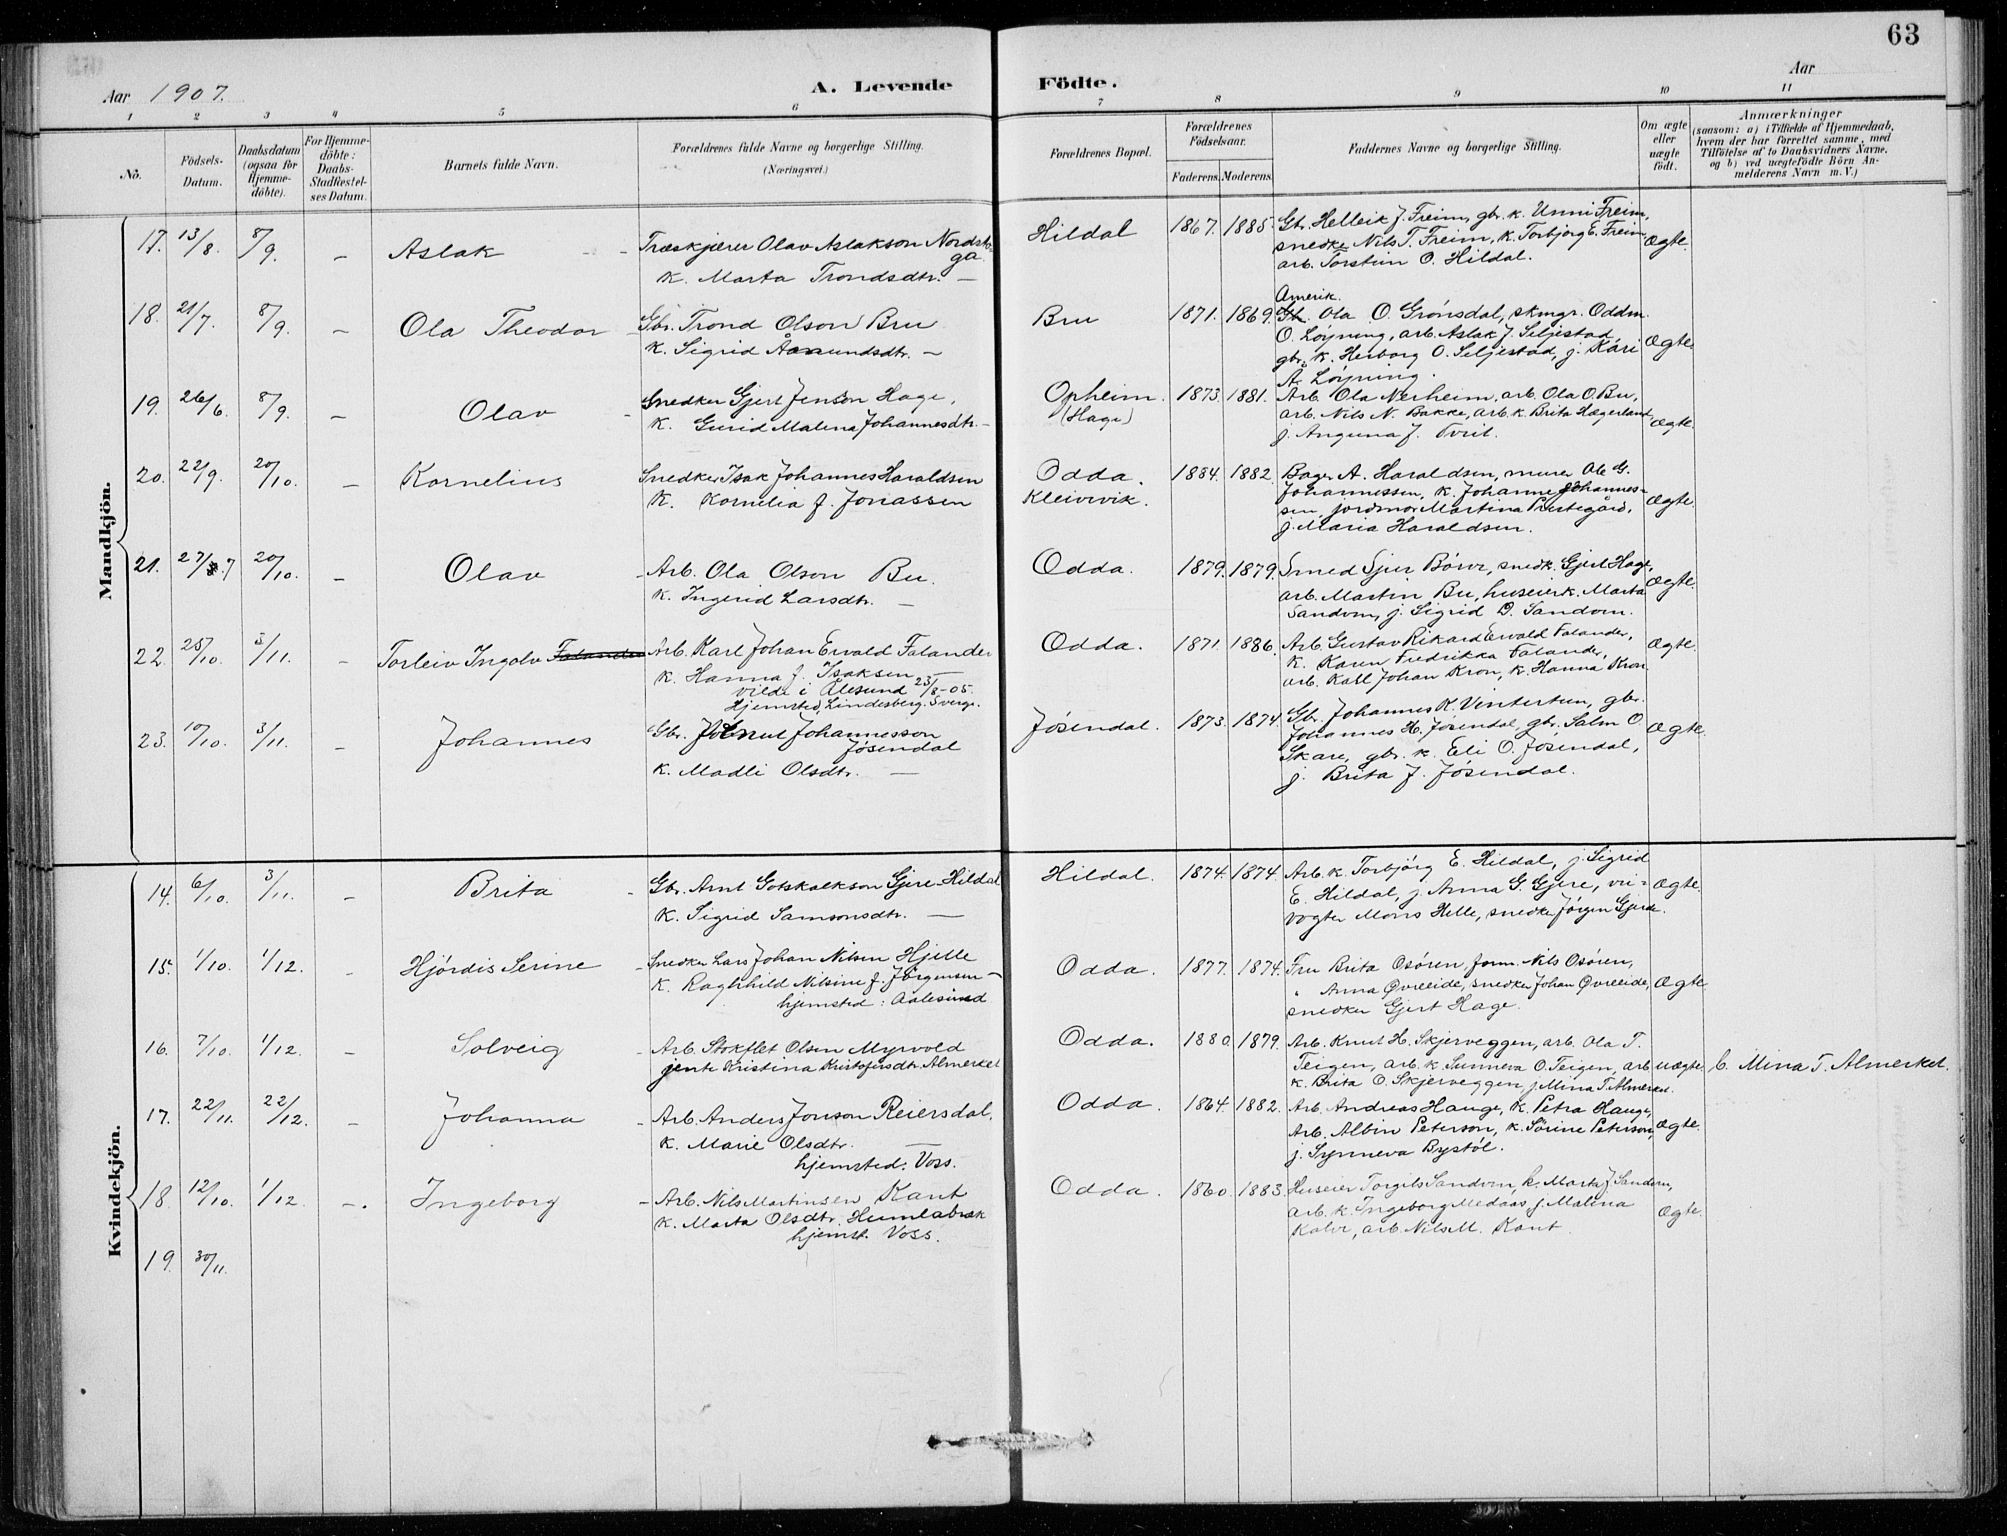 63
Aar 1907.
A. Levende Födte.
Aar
1 2 3 4 5 6 7 8 9 10 11
No.
Födsels-Datum.
Daabsdatum (ogsaa for Hjemme-döbte).
For Hjemme-döbte: Daabs-Stadfæstel-ses Datum.
Barnets fulde Navn.
Forældrenes fulde Navne og borgerlige Stilling. (Næringsvei.)
Forældrenes Bopæl.
Forældrenes Födselsaar.
Faderens. Moderens.
Faddernes Navne og borgerlige Stilling.
Om ægte eller uægte födt.
Anmærkninger
(saasom: a) i Tilfælde af Hjemmedaab, hvem der har forrettet samme, med Tilföielse af to Daabsvidners Navne, og b) ved uægtefödte Börn An-melderens Navn m. V.)
Mandkjön.
17. 13/8. 8/9. - Aslak - Træskjærer Olav Aslakson Nordstoga
k. Marta Trondsdtr. —
Hildal 1867. 1885. Gb. Helleik J. Freim, gbr. k. Unni Freim,
snedker Nils T. Freim, k. Torbjorg E. Freim,
arb. Torstein O. Hildal.
Ægte.
18. 21/7. 8/9. - Ola Theodor - Gbr. Trond Olson Bru
k. Sigrid Åsmundsdtr. —
Bru 1871. 1869. Amerik.
Ola O. Grönsdal, skmgr. Oddm.
O. Löyning, arb. Aslak J. Seljestad
gbr. k. Herborg O. Seljestad, j. Kári
Å. Löyning.
Ægte.
19. 26/6. 8/9. - Olav - Snedker Gjert Jenson Hage,
k. Gurid Malena Johannesdtr. —
Opheim. (Hage) 1873. 1881. Arb. Ola Nerheim, arb. Ola O. Bu,
arb. Nils N. Bakke, arb. k. Brita Hægerland,
j. Anguna J. Tveit.
Ægte.
20. 22/9. 20/10. - Kornelius Snedker Isak Johannes Haraldsen
k. Kornelia f. Jonassen
Odda. Kleivevik. 1884. 1882. Bager A. Haraldsen, murer Ole G.
Johannessen, k. Johanne Johannes-
sen, jordmor Martina Prestegård,
j. Maria Haraldsen.
Ægte.
21. 27/7 20/10. - Olav - Arb. Ola Olson Bu.
k. Ingerid Larsdtr. —
Odda. 1879. 1879. Smed Sjur Börve, snedk. Gjert Hage,
arb. Martin Bu, huseierk. Marta
Sandven, j. Sigrid D. Sandven.
Ægte.
22. 25/10. 3/11. - Torleiv Ingolv Falander Arb. Karl Johan Ervald Falander
k. Hanna f. Isaksen —
viede i Ålesund 23/8-05.
Hjemsted, Lindesberg. Sverge.
Odda. 1871. 1886. Arb. Gustav Rikard Ervald Falander,
k. Karen Fredrikka Falander,
arb. Karl Johan Kron, k. Hanna Kron
Ægte.
23. 10/10. 3/11. - Johannes Gbr. Knut Johannesson
Jösendal
k. Madli Olsdtr. —
Jösendal. 1873. 1874. Gbr. Johannes K. Vintertun, gbr.
Johannes H. Jösendal, gbr. Salm O.
Skare, gbr. k. Eli O. Jösendal,
j. Brita J. Jösendal.
Ægte.
Kvindekjön.
14. 6/10. 3/11. - Brita - Gbr. Arnt Gotskalkson Gjere-Hildal
k. Sigrid Samsonsdtr. —
Hildal. 1874. 1874. Arb. k. Torbjörg E. Hildal, j. Sigrid
E. Hildal, j. Anna G. Gjere, vei-
vogter Mons Helle, snedker Jörgen Gjerde.
Ægte.
15. 1/10. 1/12. - Hjördis Serine - Snedker Lars Johan Nilsen Hjelle
k. Raghhild Nilsine f. Jörgensen —
hjemsted: Aalesund
Odda. 1877. 1874. Fru Brita Osören, form. Nils Osören,
" Anna Øvreeide, snedker Johan Øvreeide,
snedker Gjert Hage.
Ægte
16. 7/10. 1/12. - Solveig - Arb. Stokflet Olsen Myrvold
jente Kristina Kristofersdtr. Almerket
Odda. 1880. 1879. Arb. Knut H. Skjerveggen, arb. Ola T.
Teigen, arb. k. Sunneva O. Teigen, arb.
k. Brita O. Skjerveggen, j. Mina T. Almerket.
uægte b. Mina T. Almerket.
17. 22/11. 22/12. - Johanna - Arb. Anders Jonson Reiersdal.
k. Marie Olsdtr. —
hjemsted: Voss.
Odda. 1864. 1882. Arb. Andreas Hauge, k. Petra Hauge,
Arb. Albin Peterson, k. Sörine Peterson,
j. Synneva Bystöl.
Ægte.
18. 12/10. 1/12. -. Ingeborg - Arb. Nils Martinsen Kant
k. Marta Olsdtr. Humlabrek
hjemst. Voss.
Odda. 1860. 1883. Huseier Torgils Sandven, k. Marta J. Sandven,
arb. k. Ingeborg Medaas, j. Malena
Kalve, arb. Nils M. Kant
Ægte.
19. 30/11.